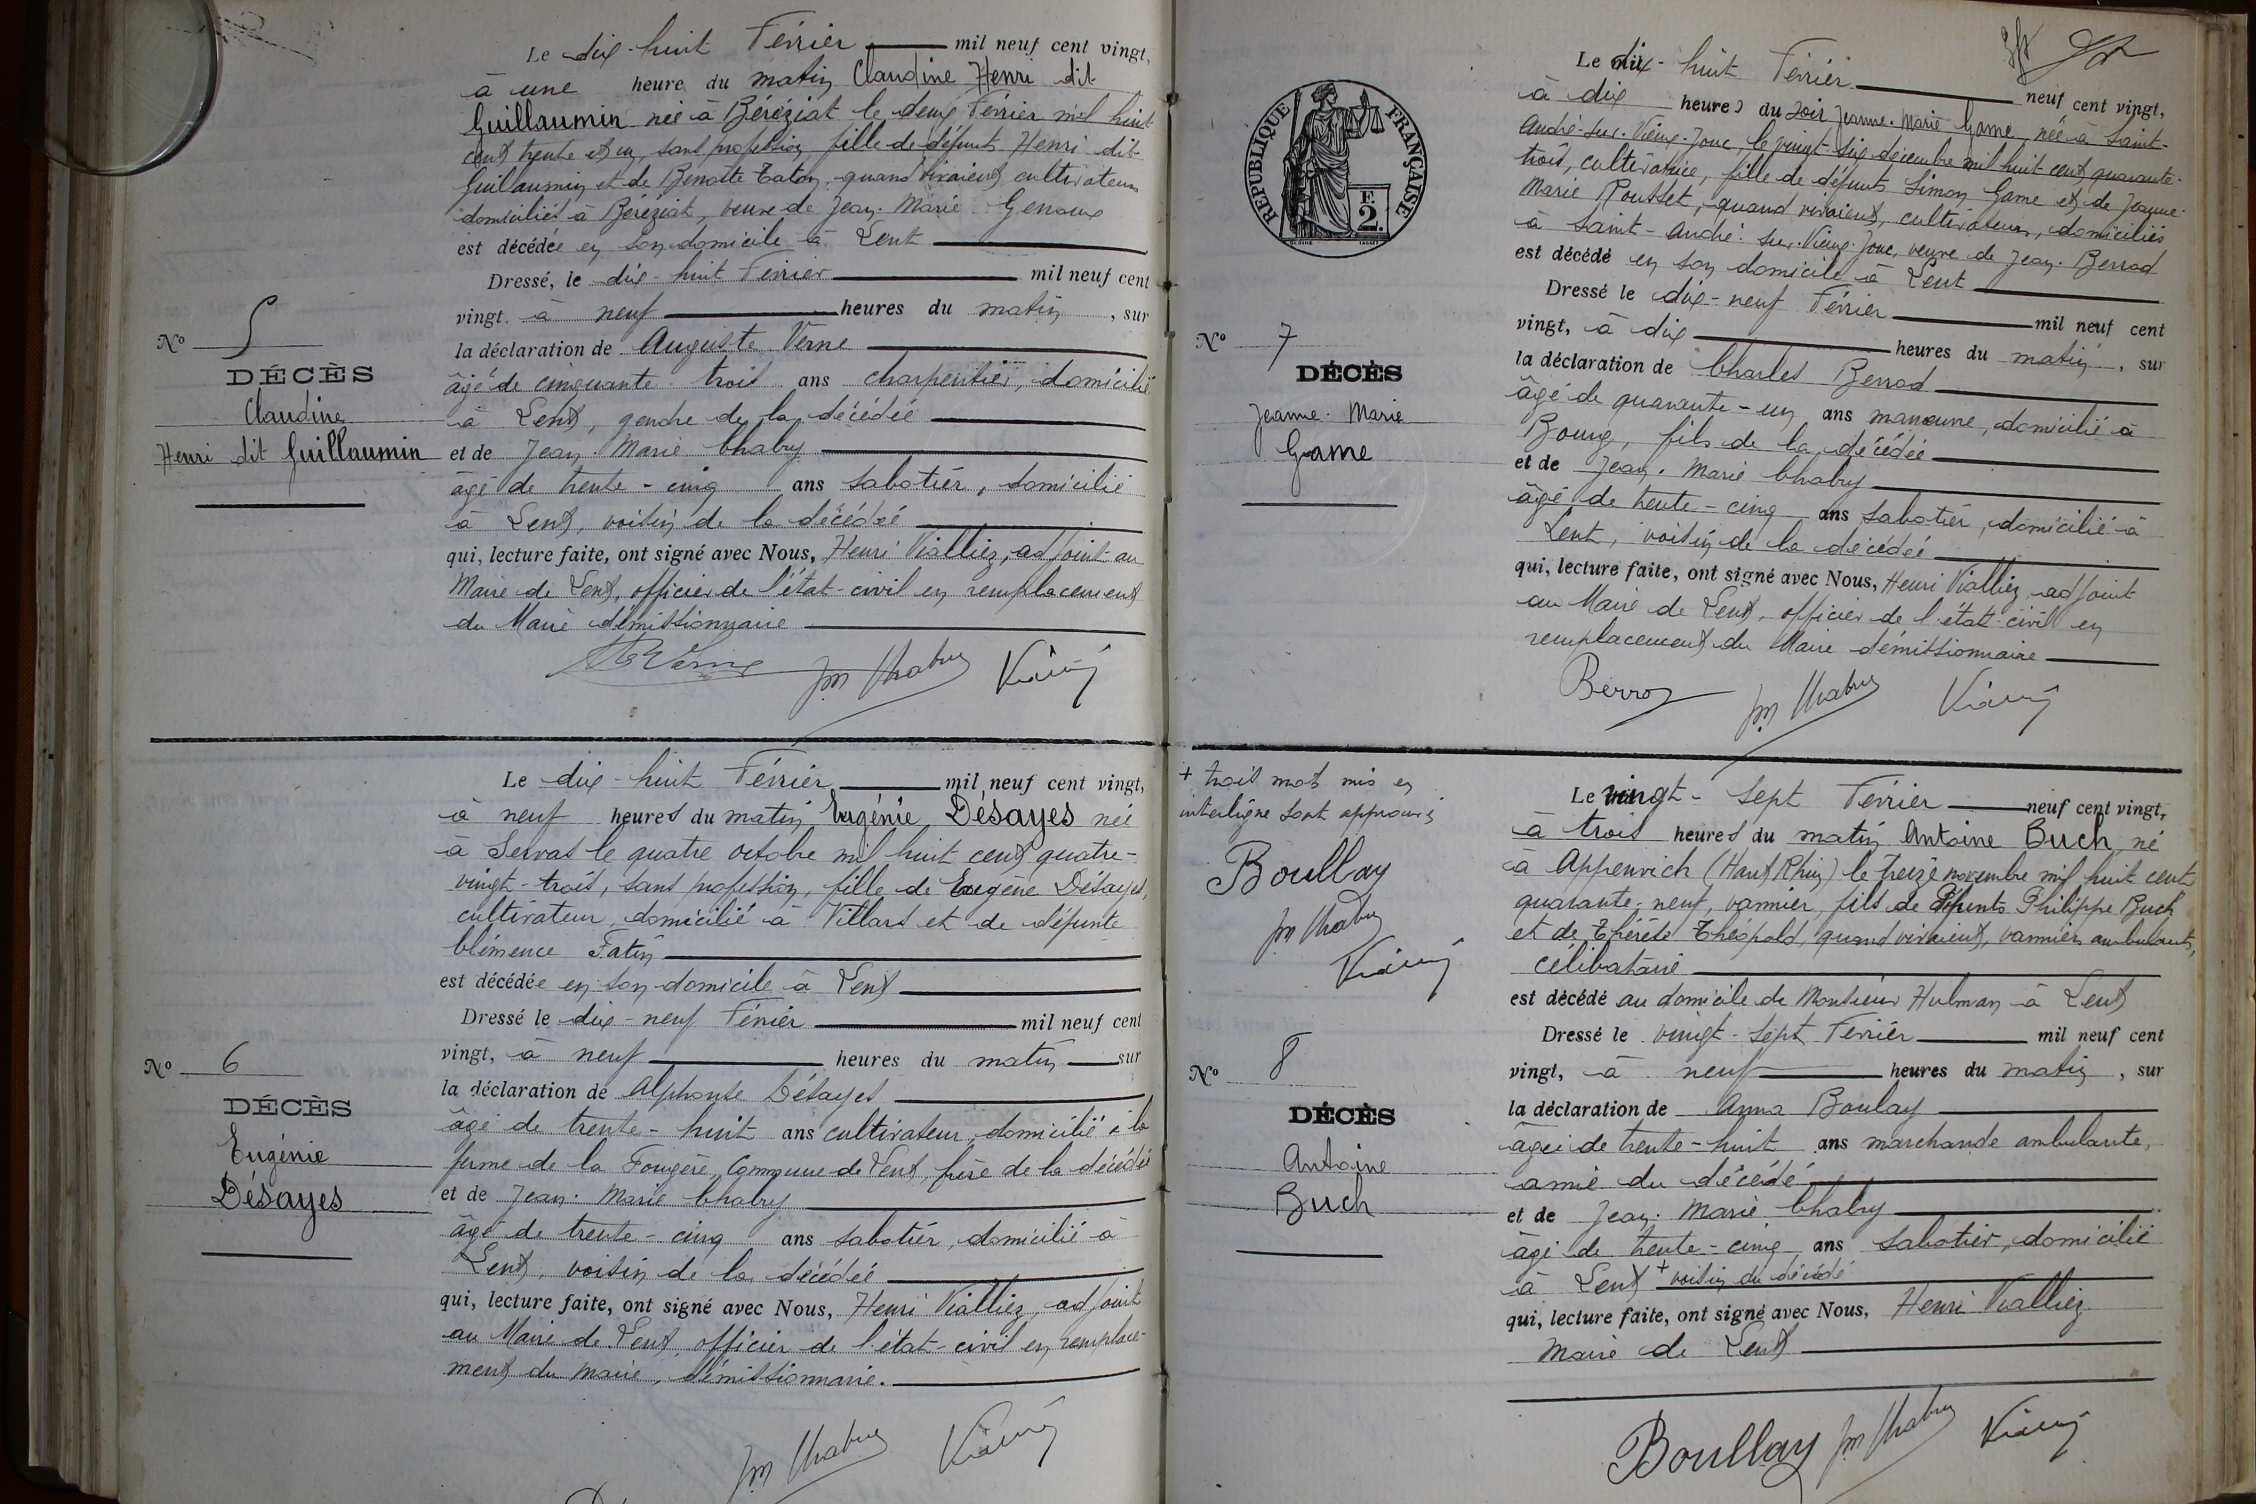 Le dix-huit Février mil neuf cent vingt,
à une heure du matin Claudine Henri dit
Guillaumin née à Béréziat le deux Février mil huit
cent trente et un, sans profession, fille de défunts Henri dit
Guillaumin et de Benoite Caton, quand vivaient cultivateurs
domiciliés à Béréziat, veuve de Jean-Marie Genoux
est décédée en son domicile à Lent
Dressé, le dix-huit Février mil neuf cent
vingt à neuf heures du matin, sur
la déclaration de Auguste Verne
âgé de cinquante-trois ans charpentier, domicilié
à Lent, gendre de la décédée
et de Jean Marie Chabry
âgé de trente-cinq ans sabotier, domicilié
à Lent, voisin de la décédée
qui, lecture faite, ont signé avec Nous, Henri Vialliez, adjoint au
Maire de Lent, officier de l'état-civil en remplacement
du Maire démissionnaire
Verne Jm Chabry
No 5
DÉCÈS
Claudine
Henri dit Guillaumin
Le dix-huit Février mil neuf cent vingt,
à neuf heures du matin Eugénie Désayes née
à Servas le quatre octobre mil huit cent quatre-
vingt-trois, sans profession, fille de Eugène Désayes,
cultivateur, domicilié à Villars et de défunte
Clémence Fatin
est décédée en son domicile à Lent
Dressé le dix-neuf Février mil neuf cent
vingt, à neuf heures du matin sur
la déclaration de Alphonse Désayes
âgé de trente-huit ans cultivateur, domicilié à la
ferme de la Fougère, Commune de Lent, frère de la décédée
et de Jean-Marie Chabry
âgé de trente-cinq ans sabotier, domicilié à
Lent, voisin de la décédée
qui, lecture faite, ont signé avec Nous, Henri Vialliez, adjoint
au Maire de Lent, officier de l'état-civil en remplace-
ment du maire, démissionnaire.
Jm Chabry
No 6
DÉCÈS
Eugénie
Désayes
RÉPUBLIQUE FRANÇAISE
F.
2.
Le dix-huit Février neuf cent vingt,
à dix heures du soir Jeanne-Marie Game née à Saint-
André-sur-Vieux-Jonc, le vingt-six décembre mil huit cent quarante-
trois, cultivatrice, fille de défunts Simon Game et de Jeanne-
Marie Rousset, quand vivaient, cultivateurs, domiciliés
à Saint-André-sur-Vieux-Jonc, veuve de Jean Berrod
est décédé en son domicile à Lent
Dressé le dix-neuf Février mil neuf cent
vingt, à dix heures du matin, sur
la déclaration de Charles Berrod
âgé de quarante-un ans manœuvre, domicilié à
Bourg, fils de la décédée
et de Jean-Marie Chabry
âgé de trente-cinq ans sabotier, domicilié à
Lent, voisin de la décédée
qui, lecture faite, ont signé avec Nous, Henri Vialliez, adjoint
au Maire de Lent, officier de l'état civil en
remplacement du Maire démissionnaire
Berrod Jm Chabry
No 7
DÉCÈS
Jeanne-Marie
Game
+ trois mots mis en
interligne sont approuvés
Boullay
Jm Chabry
Le vingt-sept Février neuf cent vingt,
à trois heures du matin Antoine Buch, né
à Appenwich (Haut Rhin) le treize novembre mil huit cent
quarante-neuf, vannier, fils de défunts Philippe Buch
et de Thérèse Théopold, quand vivaient, vanniers ambulants,
célibataire
est décédé au domicile de Monsieur Hulman à Lent
Dressé le vingt-sept Février mil neuf cent
vingt, à neuf heures du matin, sur
la déclaration de Anna Boulay
âgée de trente-huit ans marchande ambulante,
amie du décédé
et de Jean-Marie Chabry
âgé de trente-cinq ans sabotier, domicilié
à Lent + voisin du décédé
qui, lecture faite, ont signé avec Nous, Henri Vialliez
Maire de Lent
Boullay Jm Chabry
No 8
DÉCÈS
Antoine
Buch